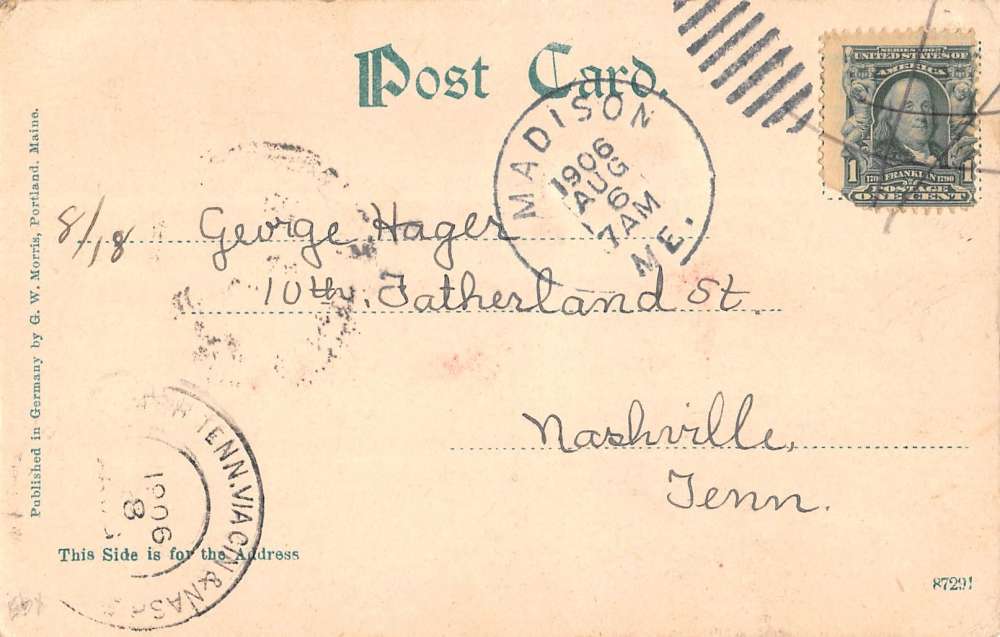 Post Card.
SERIES 1902
UNITED STATES OF
AMERICA
1 1
1706 FRANKLIN 1790
POSTAGE
ONE CENT
MADISON
1906
AUG
6
7AM
ME.
8/18 George Hager
10th. Fatherland St.
Nashville,
Tenn.
Published in Germany by G. W. Morris, Portland. Maine.
TENN. VIA CIN & NAS
1906
8
This Side is for the Address
87291